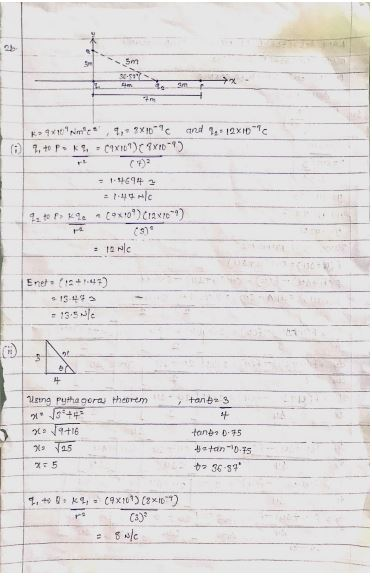 2b.
y
Q
3m
5m
36.87°
q₁
4m
q₂
3m
P
x
7m
K = 9×10⁹ Nm²C⁻², q₁ = 8×10⁻⁹C and q₂ = 12×10⁻⁹C
(i) q₁ to P = Kq₁/r² = (9×10⁹)(8×10⁻⁹)/(7)²
= 1.4694
= 1.47 N/C
q₂ to P = Kq₂/r² = (9×10⁹)(12×10⁻⁹)/(3)²
= 12 N/C
Enet = (12+1.47)
= 13.47
= 13.5 N/C
(ii)
3
x
θ
4
Using Pythagoras theorem, tanθ = 3/4
x = √3²+4²
x = √9+16 tanθ = 0.75
x = √25 θ = tan⁻¹0.75
x = 5 θ = 36.87°
q₁ to Q = Kq₁/r² = (9×10⁹)(8×10⁻⁹)/(3)²
= 8 N/C